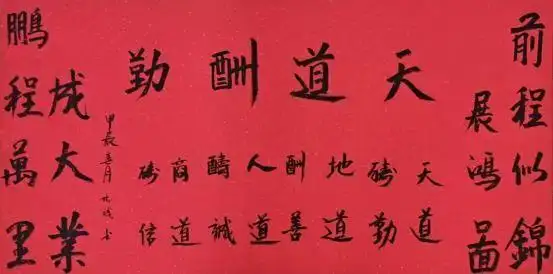 前程似錦
展鴻啚
天道酬勤
天道
勤
地道
酬善
人道
醻誠
商道
信
甲辰春月 书
成大業
鵬程萬里